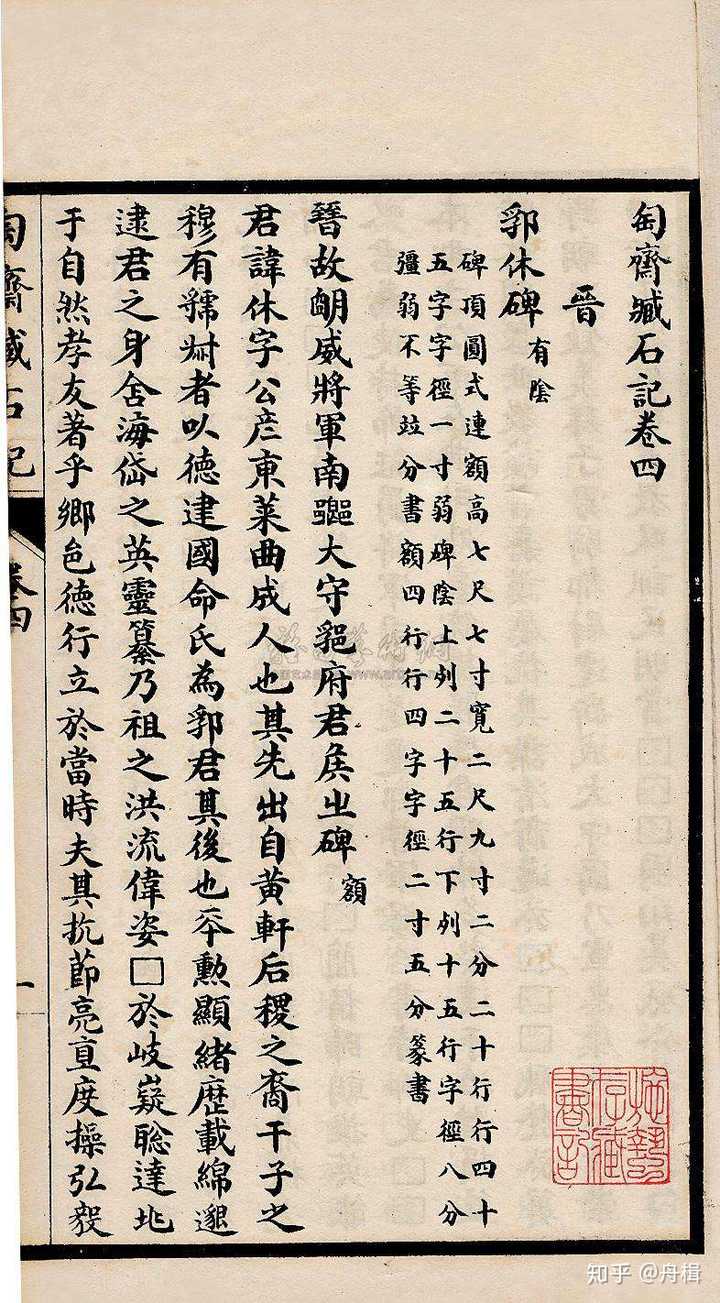 匋齋臧石記卷四
晉
郛休碑 有陰
碑頂圓式連額高七尺七寸寬二尺九寸二分二十行行四十
五字字徑一寸弱碑陰上列二十五行下列十五行字徑八分
彊弱不等竝分書額四行行四字字徑二寸五分篆書
晉故明威將軍南鄉大守郛府君矦之碑 額
君諱休字公彦東萊曲成人也其先出自黄軒后稷之裔王子之
穆有虢尗者以德建國命氏為郛君其後也平勳顯緒歷載綿邈
逮君之身含海岱之英靈纂乃祖之洪流偉姿□於岐嶷聡達兆
于自然孝友著乎鄉邑德行立於當時夫其抗節亮直度操弘毅
匋齋臧石記 卷四 一
知乎 @舟楫